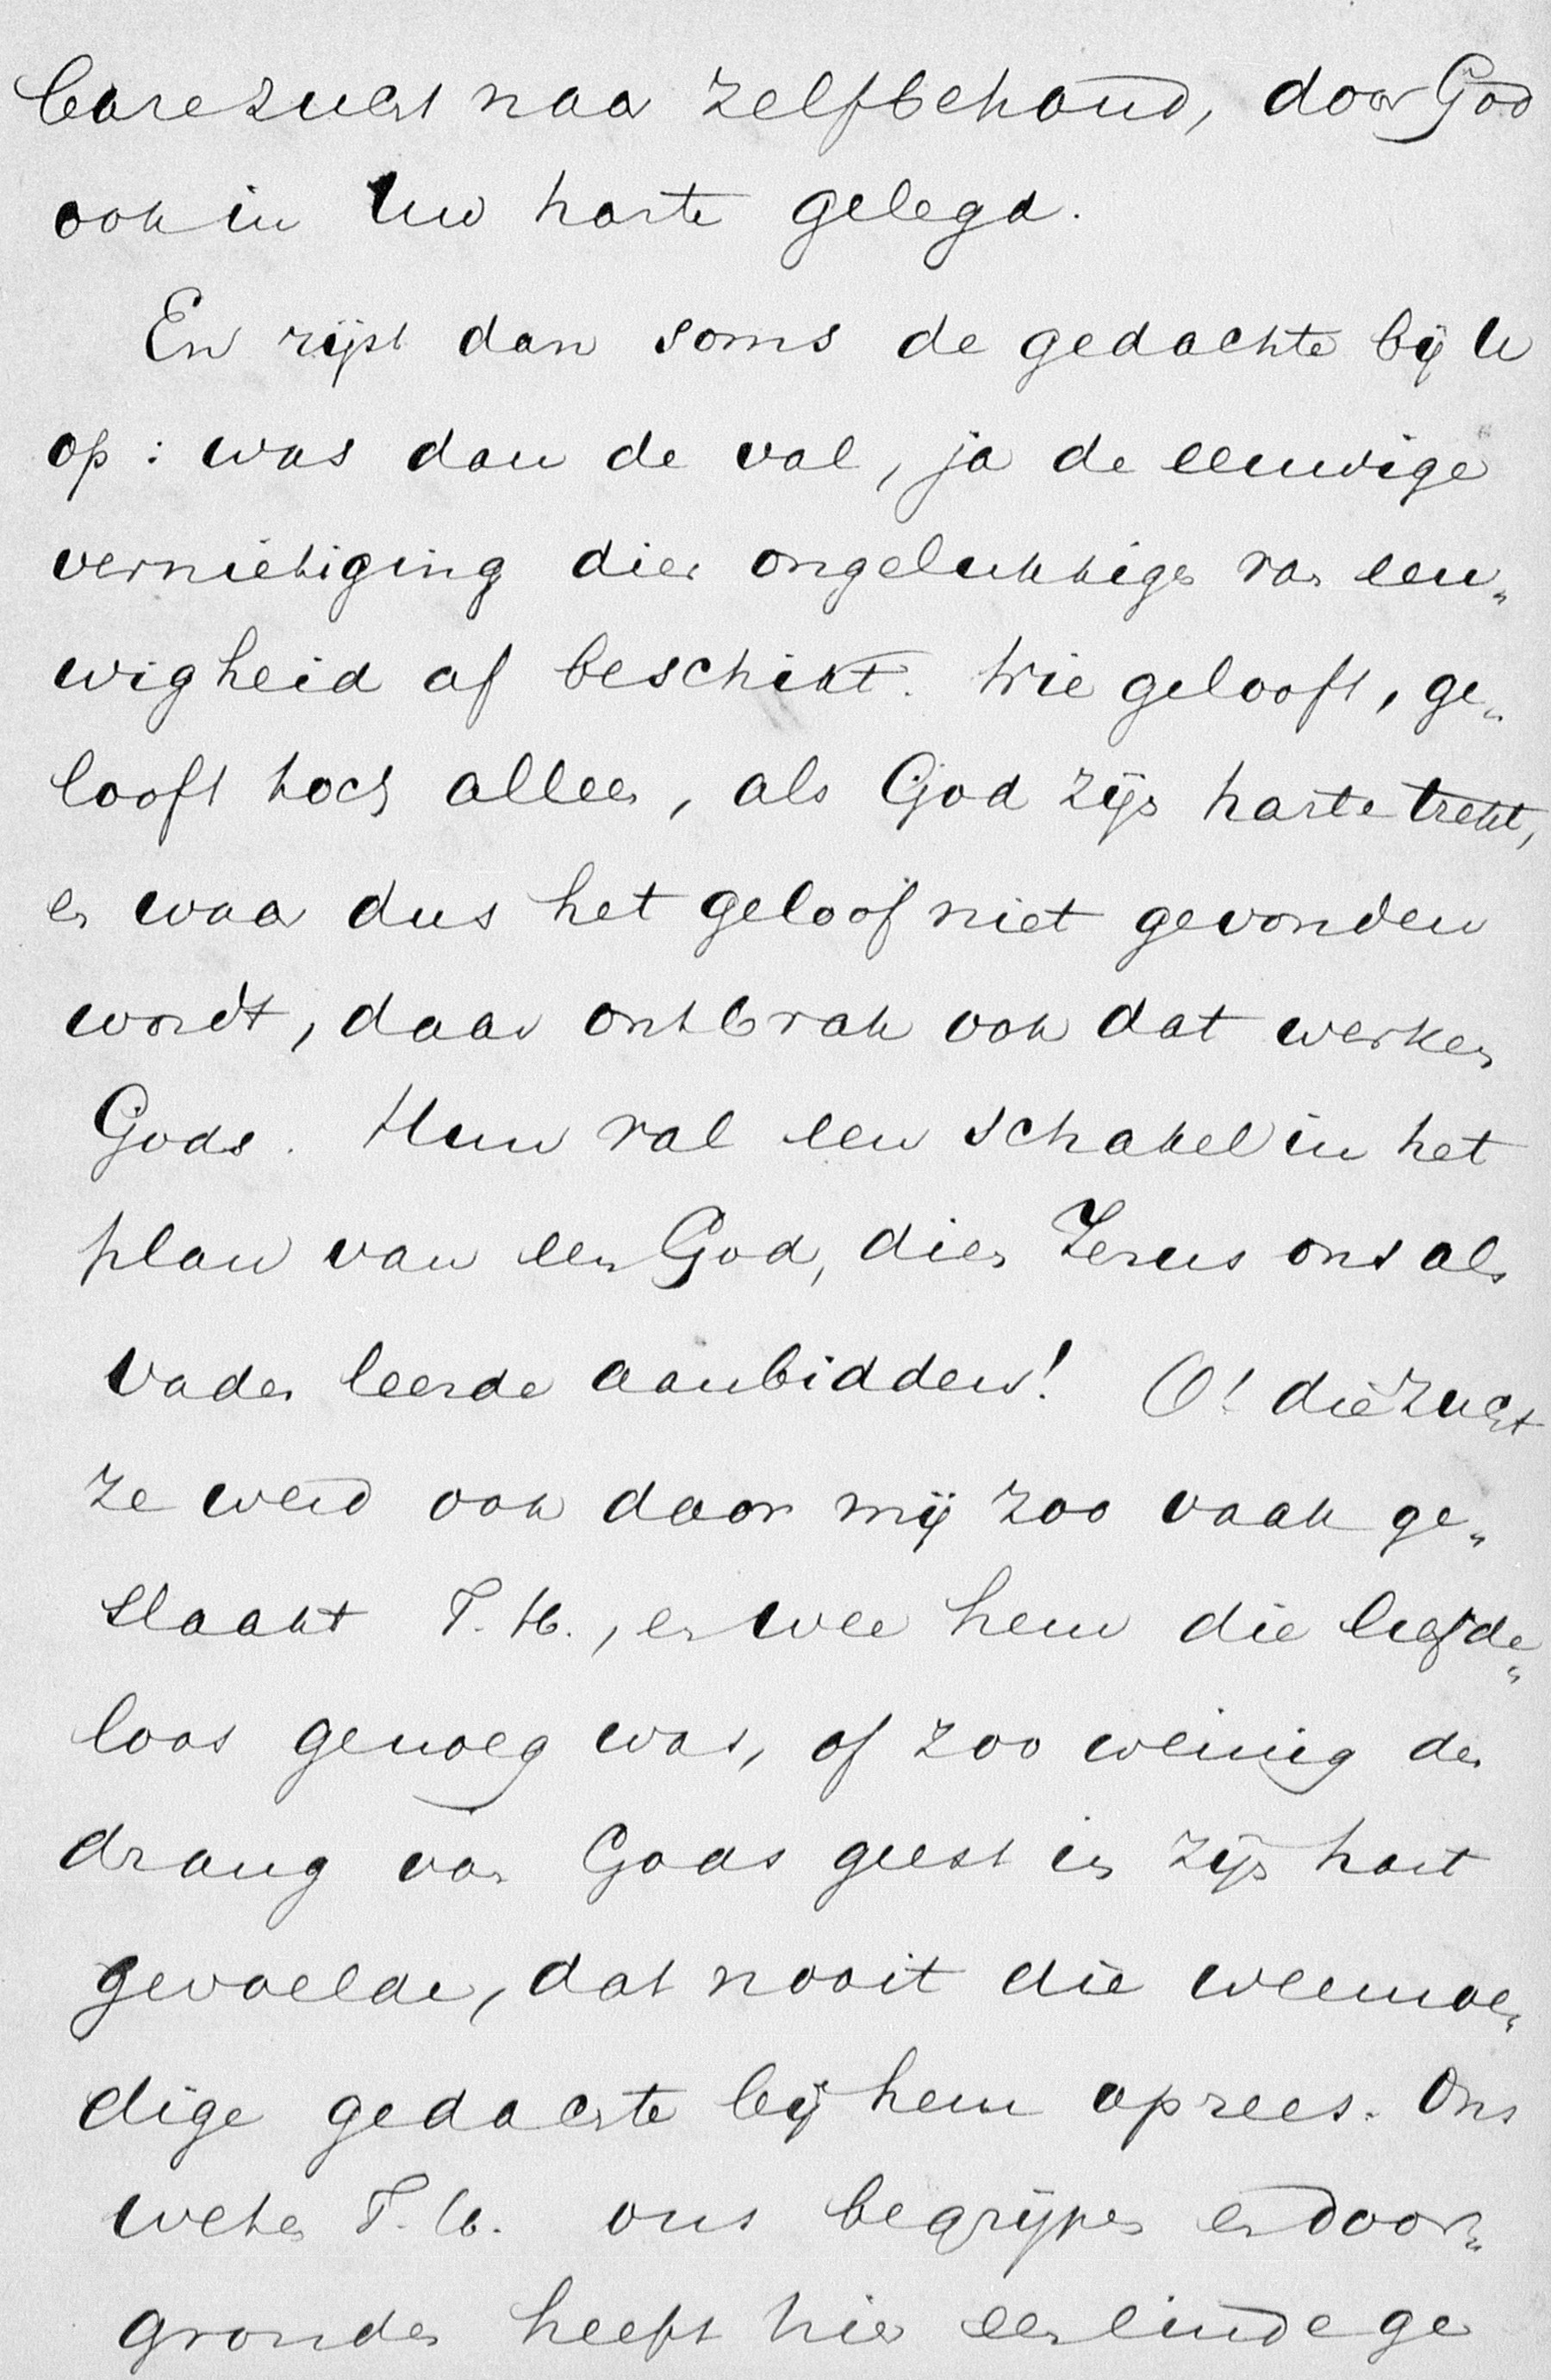 bare zucht naar zelfbehoud, door God
ook in Uw harte gelegd.
En rijst dan soms de gedachte bij U
op: was dan de val, ja de eeuwige
vernietiging dier ongelukkigen van eeu„
wigheid af beschikt. Wie gelooft, ge„
looft toch alleen, als God zijn harte trekt,
en waar dus het geloof niet gevonden
wordt, daar ontbrak ook dat werken
Gods. Hun val een schakel in het
plan van een God, dien Jezus ons als
Vader leerde aanbidden! O! die zucht
ze werd ook door mij zoo vaak ge„
slaakt T. H., en wee hem die liefde„
loos genoeg was, of zoo weinig den
drang van Gods geest in zijn hart
gevoelde, dat nooit die weemoe„
dige gedachte bij hem oprees. Ons
weten T. H. ons begrijpen en door„
gronden heeft hier een einde ge